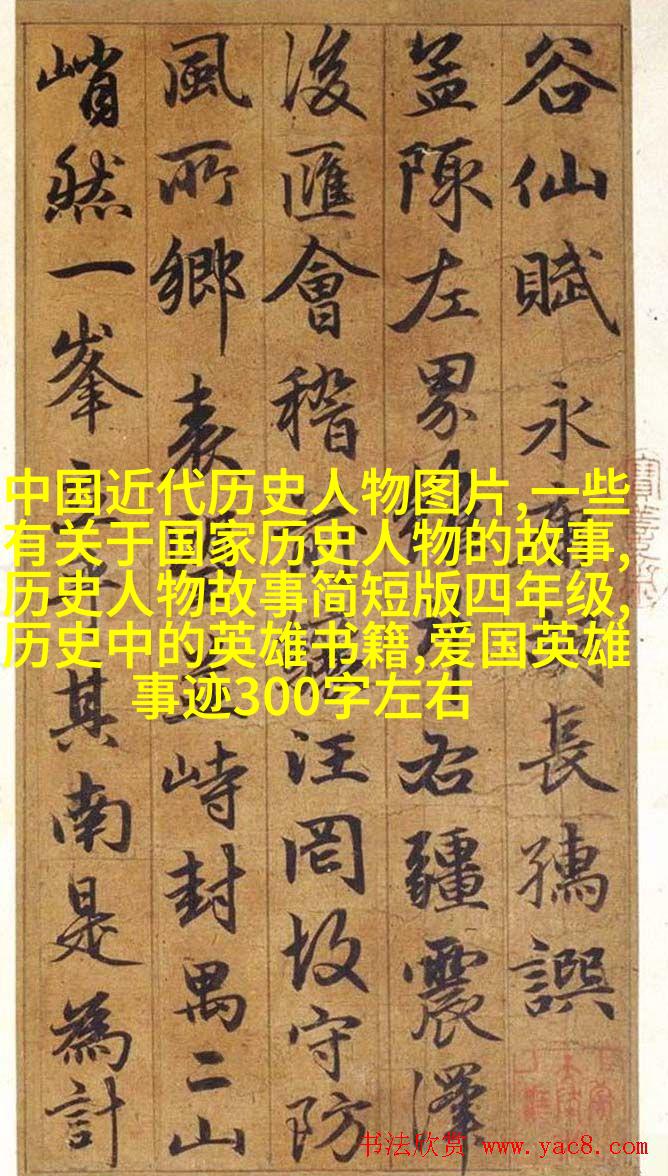 谷仙賦 永康長孺譔
陬左界右疆震澤
後匯會稽汪罔故守防
風所鄉表峙封禺二山
峭然一峯其南是為計
中国近代历史人物图片,一些
有关于国家历史人物的故事,
历史人物故事简短版四年级,
历史中的英雄书籍,爱国英雄
事迹300字左右
书法欣赏 www.yac8.com